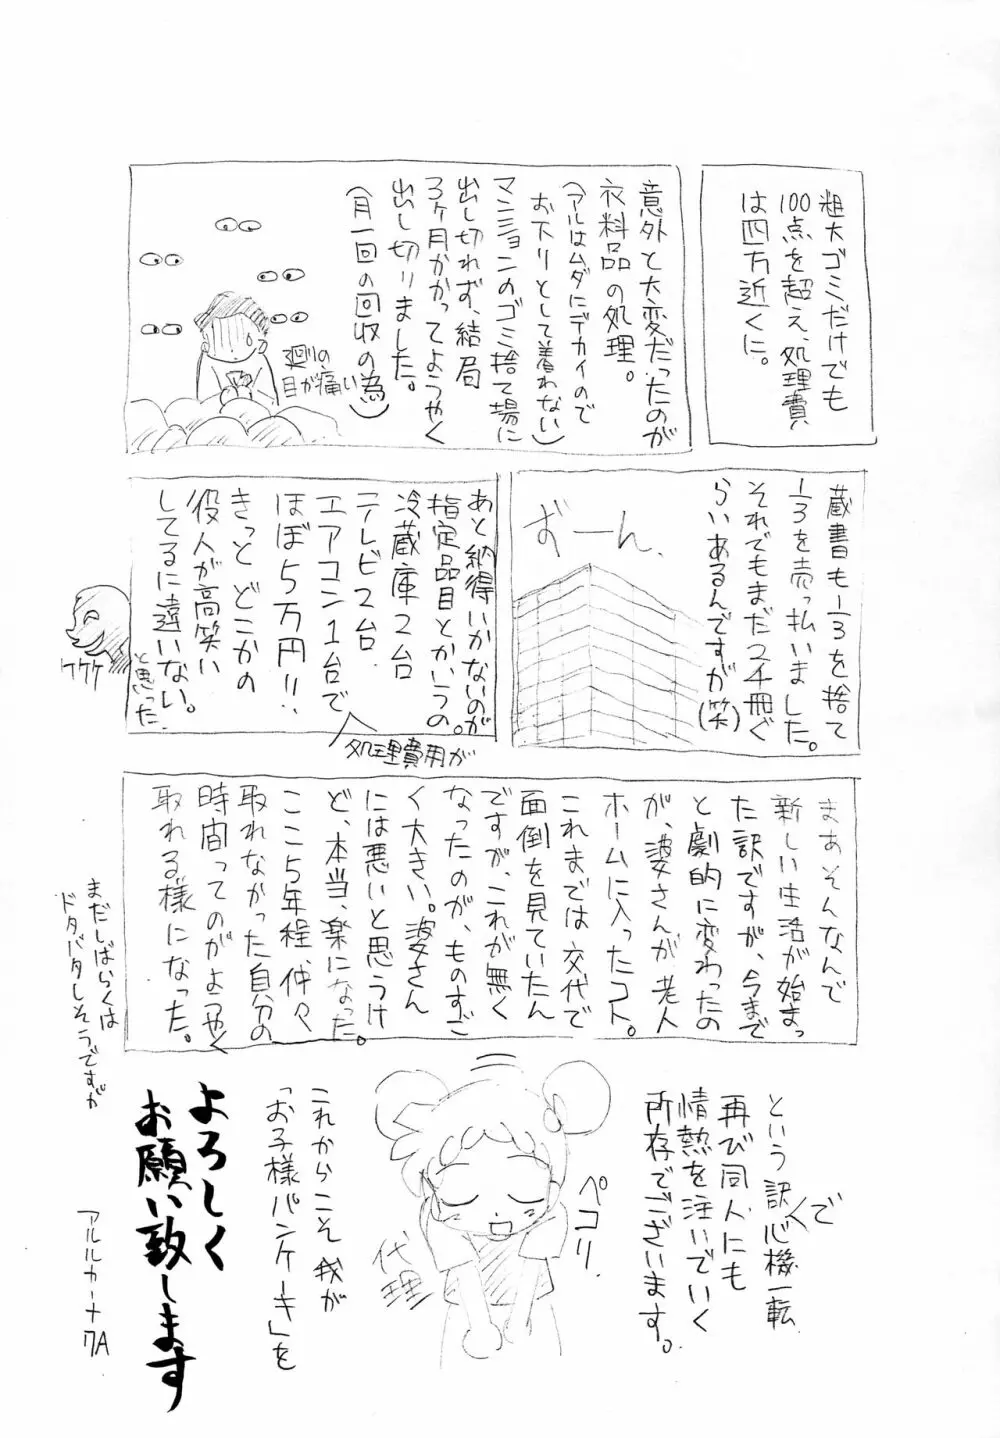 粗大ゴミだけでも
100点を超え、処理費
は四万近くに。
意外と大変だったのが
衣料品の処理。
(アルはムダにデカイので
お下りとして着れない)
マンションのゴミ捨て場に
出し切れず、結局
3ヶ月かかってようやく
出し切りました。
(月一回の回収の為)
廻りの
目が痛い
蔵書も1/3を捨て
1/3を売っ払いました。
それでもまだ2千冊ぐ
らいあるんですが(笑)
ずーん、
あと納得いかないのが
指定品目とかいうの。
冷蔵庫2台
テレビ2台、
エアコン1台で
処理費用が
ほぼ5万円!!
きっとどこかの
役人が高笑い
してるに違いない。
と思った
ケケケ
まあそんなんで
新しい生活が始まっ
た訳ですが、今まで
と劇的に変わったの
が、婆さんが老人
ホームに入ったコト。
これまでは交代で
面倒を見ていたん
ですが、これが無く
なったのが、ものすご
く大きい。婆さん
には悪いと思うけ
ど、本当、楽になった。
ここ5年程、仲々
取れなかった自分の
時間ってのがようやく
取れる様になった。
まだしばらくは
ドタバタしそうですが
という訳で
心機一転
再び同人にも
情熱を注いでいく
所存でございます。
ペコリ、
代理
これからこそ我が
「お子様パンケーキ」を
よろしく
お願い致します
アルルカーナ7A